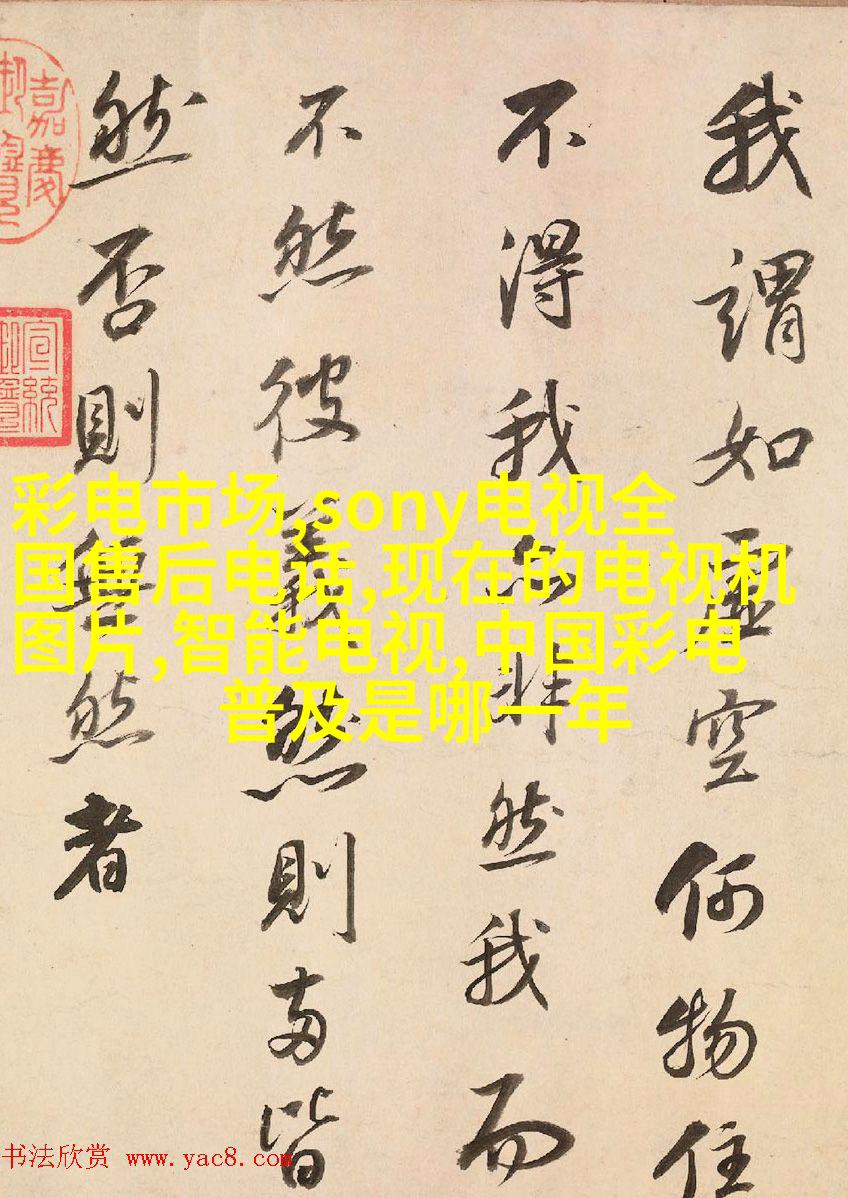 我謂如虛空何物住
不得我亦非然我而
不然彼義然則兩皆
然否則無然者
嘉慶
宣統
彩电市场,sony电视全
国售后电话,现在的电视机
图片,智能电视,中国彩电
普及是哪一年
书法欣赏 www.yac8.com